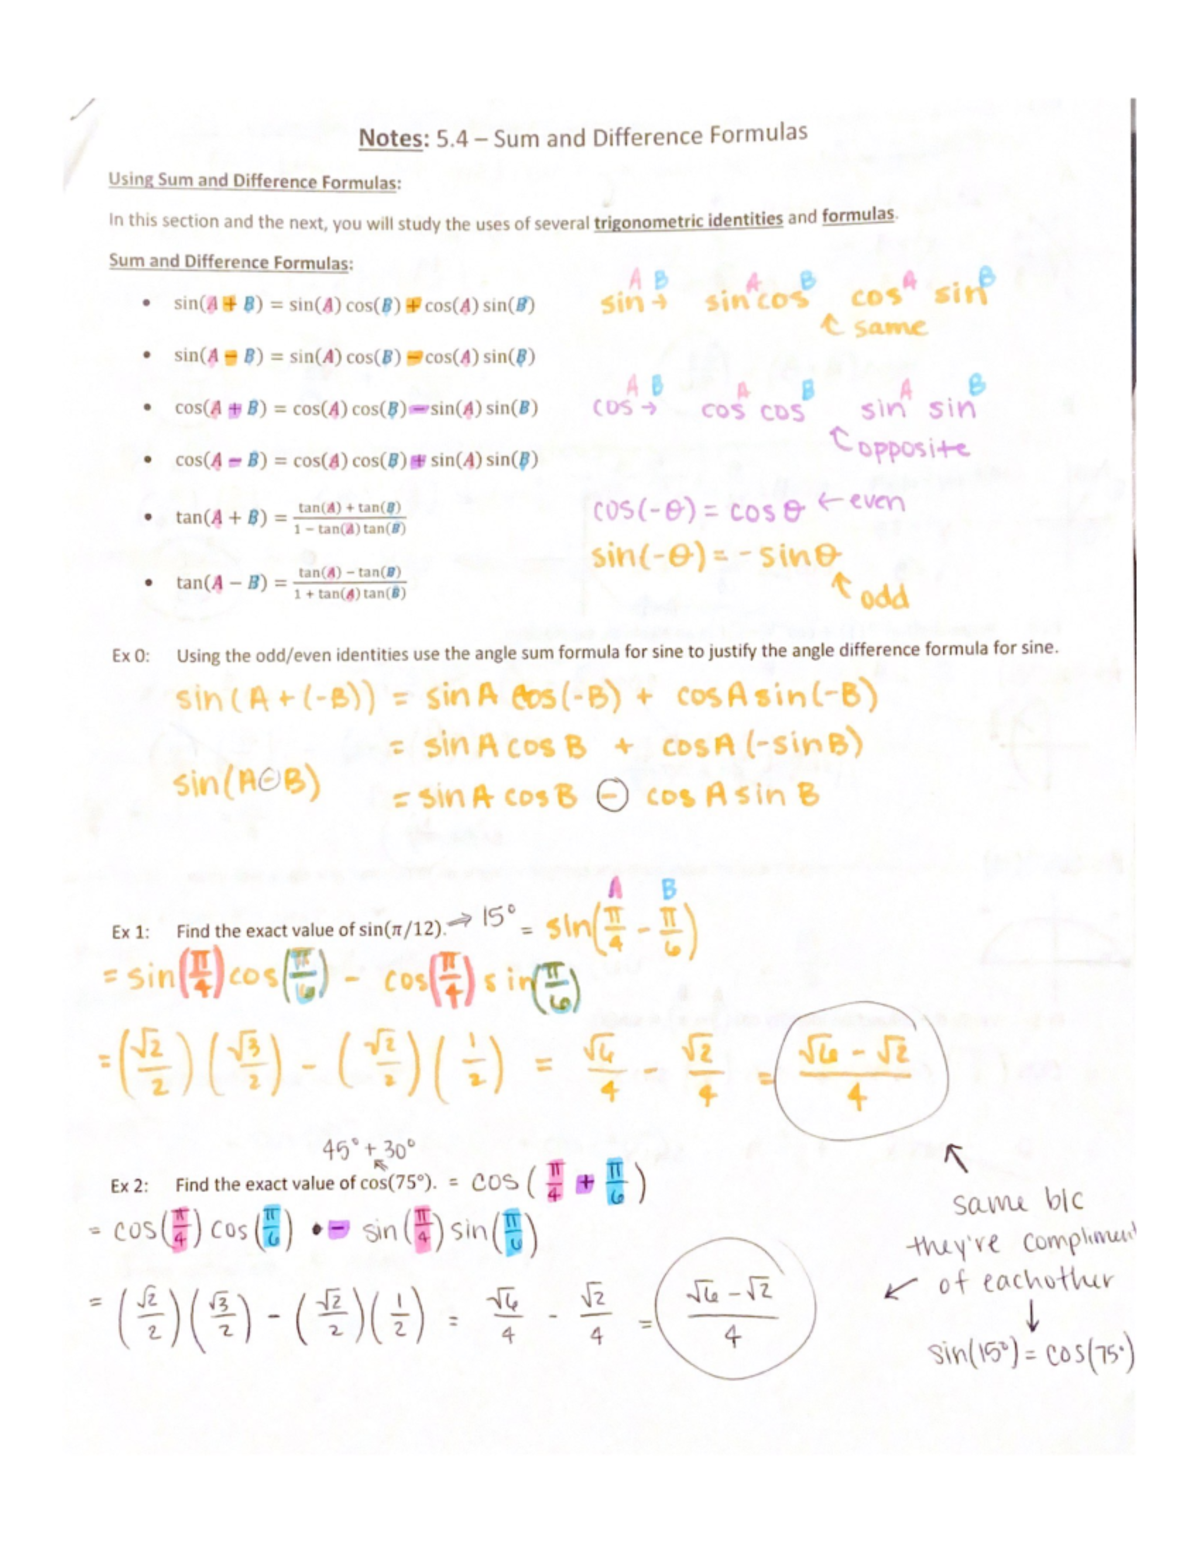 Notes: 5.4 – Sum and Difference Formulas
Using Sum and Difference Formulas:
In this section and the next, you will study the uses of several trigonometric identities and formulas.
Sum and Difference Formulas:
• sin(A + B) = sin(A) cos(B) + cos(A) sin(B)
A B A B A B
sin → sin cos cos sin
↑ same
• sin(A − B) = sin(A) cos(B) − cos(A) sin(B)
• cos(A + B) = cos(A) cos(B) − sin(A) sin(B)
A B A B A B
cos → cos cos sin sin
↑ opposite
• cos(A − B) = cos(A) cos(B) + sin(A) sin(B)
• tan(A + B) = (tan(A) + tan(B))/(1 − tan(A) tan(B))
cos(-θ) = cos θ ← even
• tan(A − B) = (tan(A) − tan(B))/(1 + tan(A) tan(B))
sin(-θ) = - sin θ
↑ odd
Ex 0: Using the odd/even identities use the angle sum formula for sine to justify the angle difference formula for sine.
sin (A + (-B)) = sin A cos(-B) + cos A sin(-B)
= sin A cos B + cos A (-sin B)
sin(A - B) = sin A cos B - cos A sin B
A B
Ex 1: Find the exact value of sin(π/12). ⇒ 15° = sin(π/4 - π/6)
= sin(π/4) cos(π/6) - cos(π/4) sin(π/6)
= (√2/2)(√3/2) - (√2/2)(1/2) = √6/4 - √2/4 = (√6 - √2)/4
45° + 30°
Ex 2: Find the exact value of cos(75°). = cos(π/4 + π/6)
= cos(π/4) cos(π/6) • - sin(π/4) sin(π/6)
= (√2/2)(√3/2) - (√2/2)(1/2) = √6/4 - √2/4 = (√6 - √2)/4
same b/c
they're compliment
of eachother
↓
sin(15°) = cos(75°)